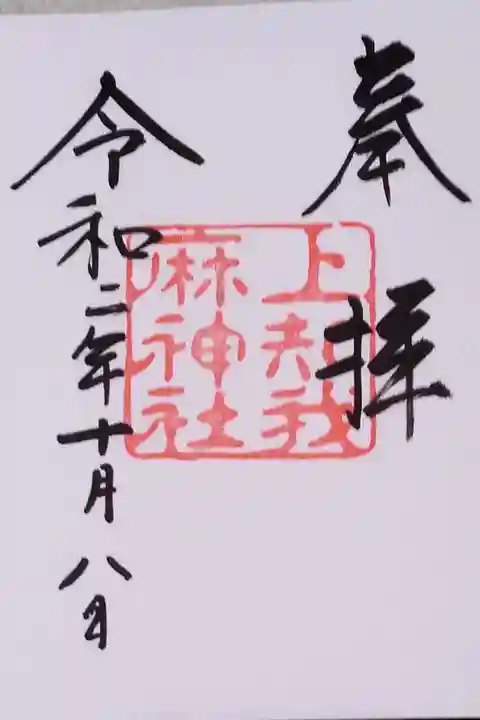 奉拝
上知我
麻神社
令和二年十月八日